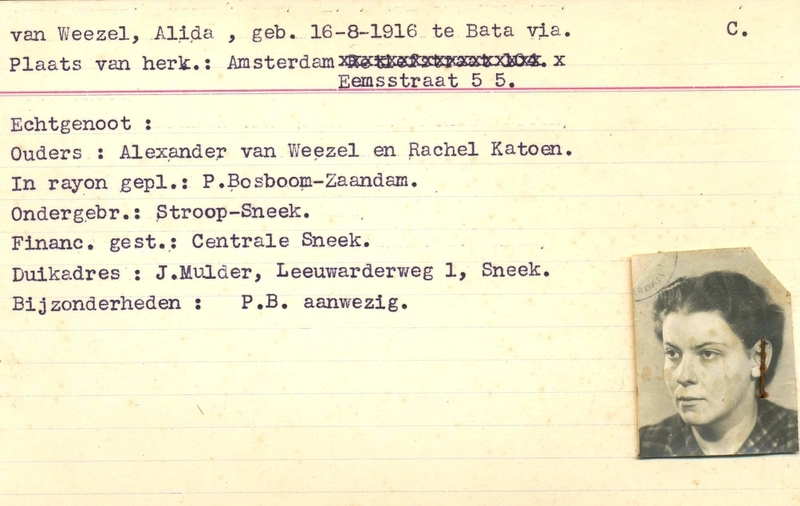 van Weezel, Alida , geb. 16-8-1916 te Bata via. C.
Plaats van herk.: Amsterdam x
Eemsstraat 5 5.
Echtgenoot :
Ouders : Alexander van Weezel en Rachel Katoen.
In rayon gepl.: P.Bosboom-Zaandam.
Ondergebr.: Stroop-Sneek.
Financ. gest.: Centrale Sneek.
Duikadres : J.Mulder, Leeuwarderweg 1, Sneek.
Bijzonderheden : P.B. aanwezig.